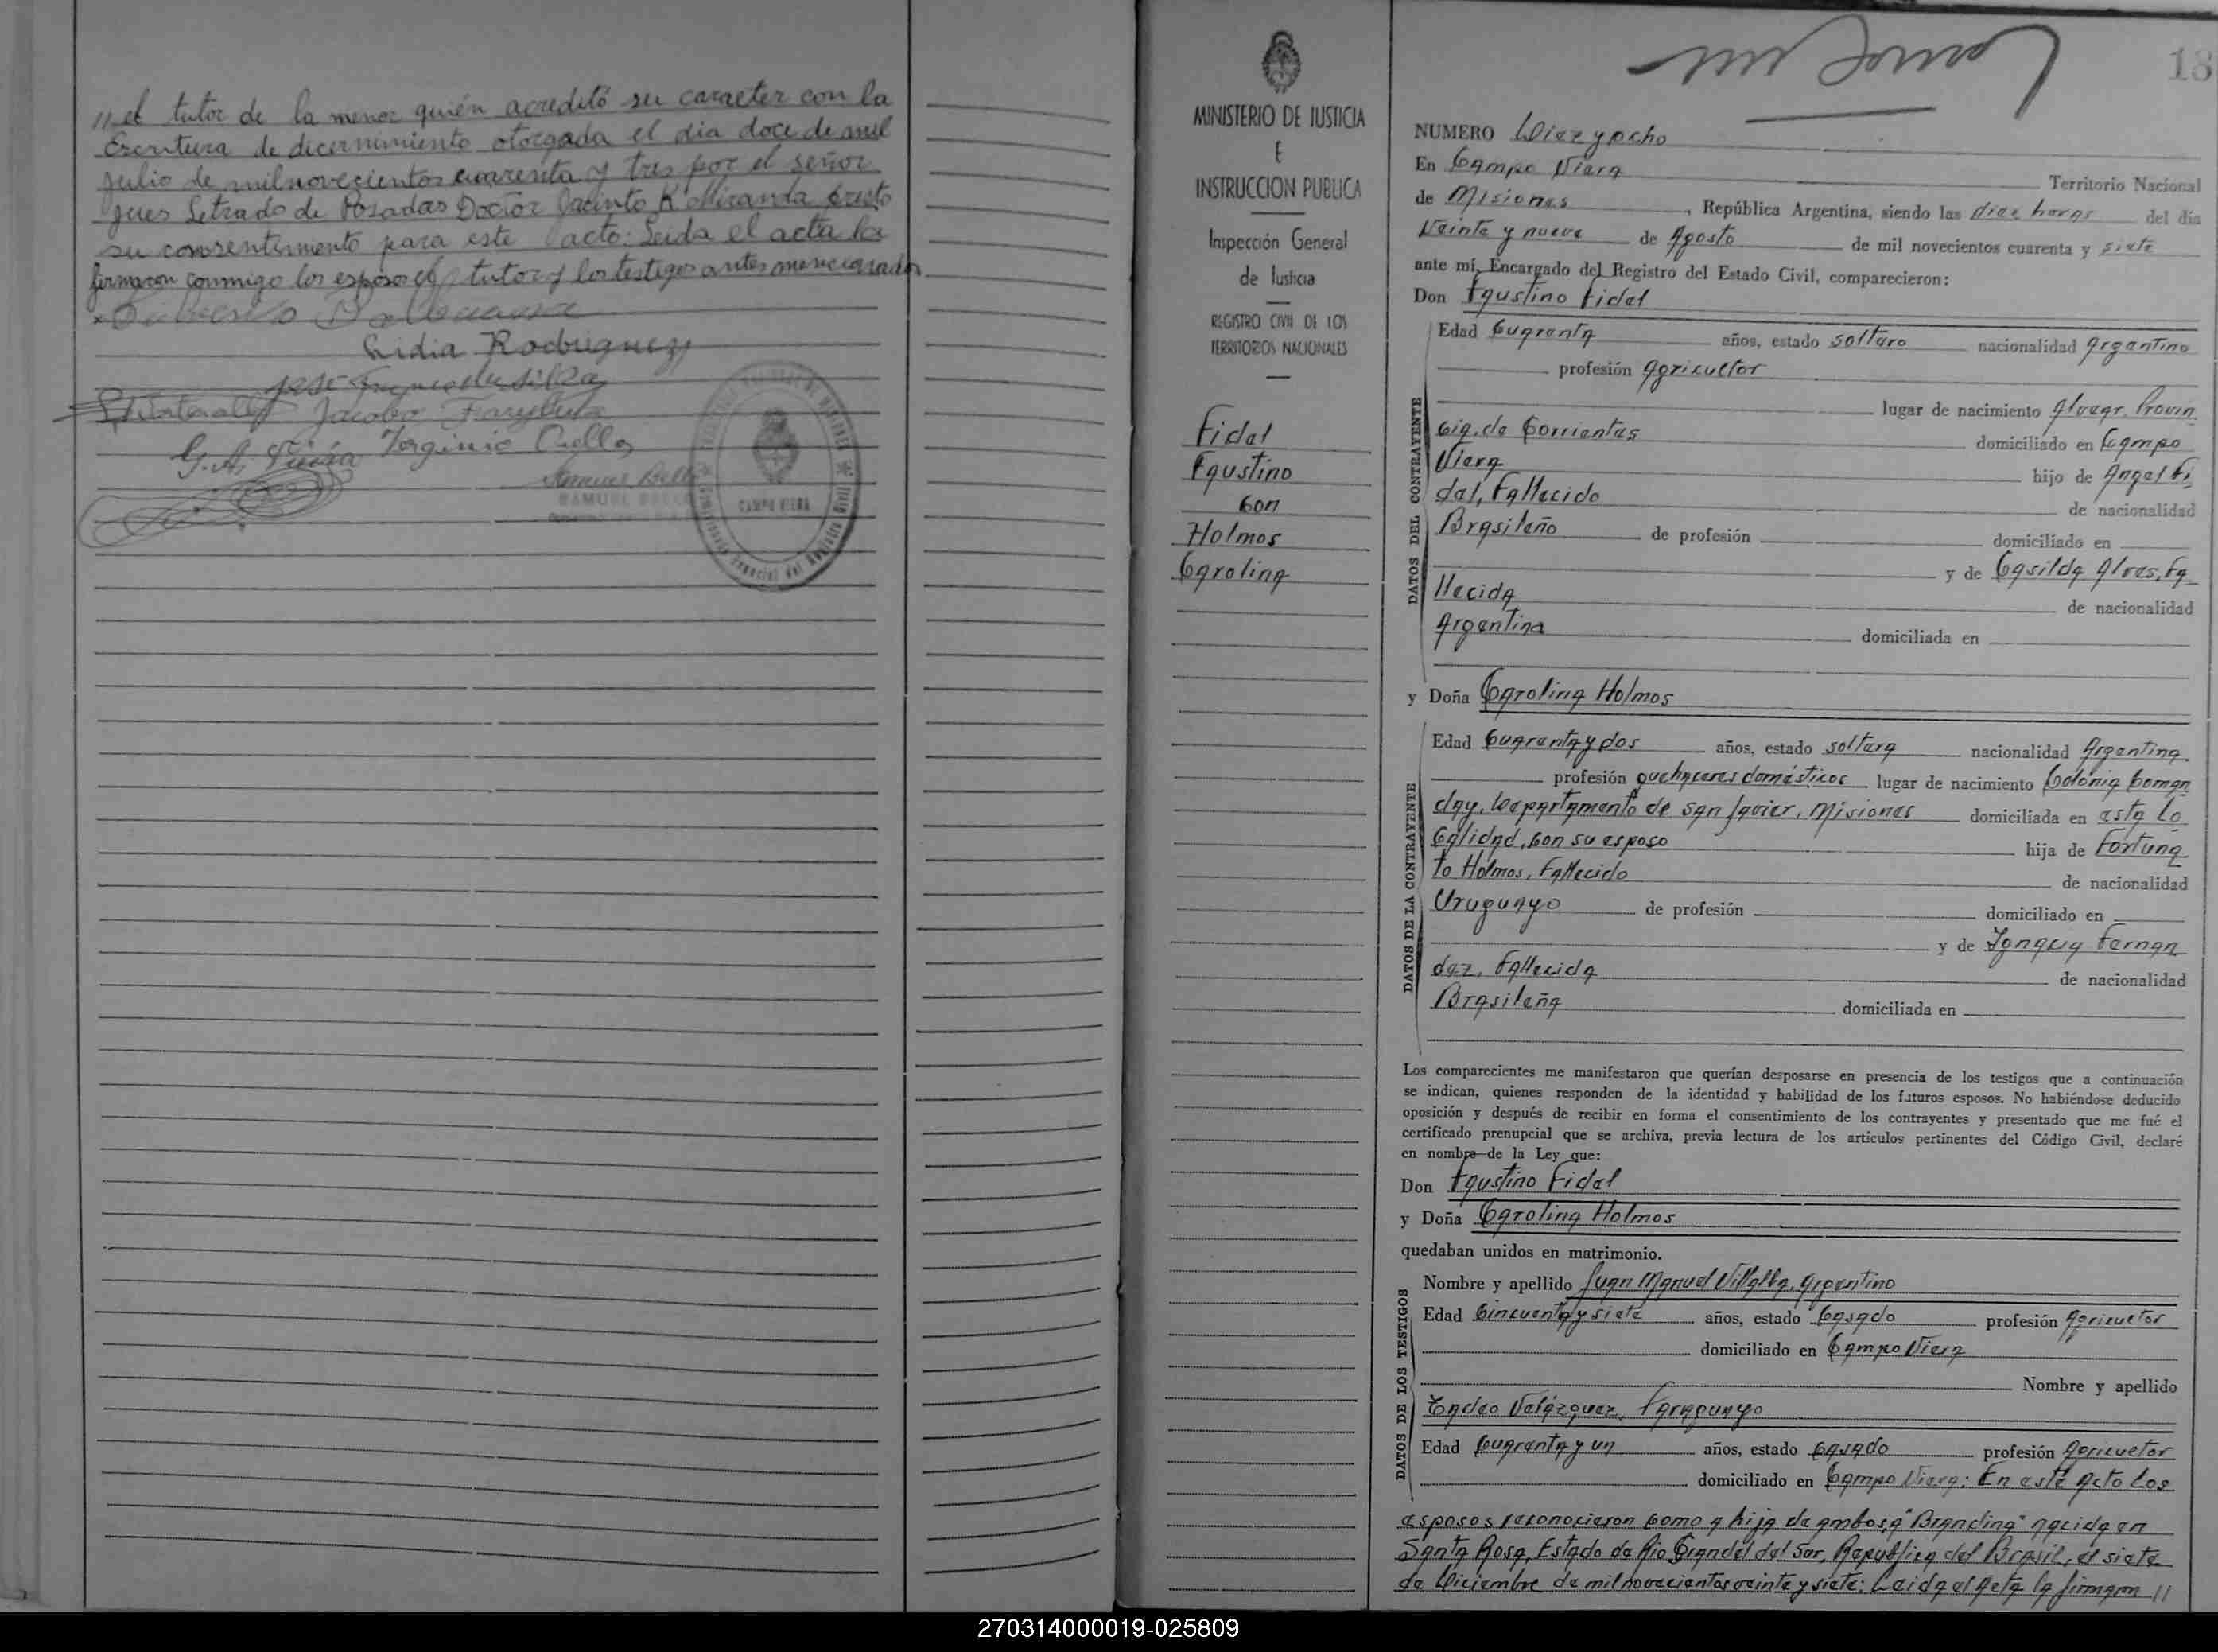 // el tutor de la menor quién acreditó su caracter con la
Escritura de dicernimiento otorgada el dia doce de mil
Julio de mil novecientos cuarenta y tres por el señor
Jues Letrado de Posadas Doctor Jacinto R. Miranda
su consentimiento para este acto: Leida el acta la
firmaron conmigo los esposos el tutor y los testigos antes mencionados
Lidia Rodriguez
Jacobo
G. A. Vieira Verginio Cuello
Samuel Bello
CAMPO VIERA
MINISTERIO DE JUSTICIA
E
INSTRUCCION PUBLICA
Inspección General
de Justicia
REGISTRO CIVIL DE LOS
TERRITORIOS NACIONALES
Fidal
Faustino
Con
Holmos
Carolina
18
NUMERO Diez y ocho
En Campo Viera Territorio Nacional
de Misiones, República Argentina, siendo las diez horas del día
Veinte y nueve de Agosto de mil novecientos cuarenta y siete
ante mí, Encargado del Registro del Estado Civil, comparecieron:
Don Faustino Fidal
DATOS DEL CONTRAYENTE
Edad Cuarenta años, estado soltero nacionalidad Argentino
profesión Agricultor
lugar de nacimiento Alvear, Provin
cia, de Corrientes domiciliado en Campo
Viera hijo de Angel Fi
dal, Fallecido de nacionalidad
Brasileño de profesión domiciliado en
y de Casilda Alves, Fa
llecida de nacionalidad
Argentina domiciliada en
y Doña Carolina Holmos
DATOS DE LA CONTRAYENTE
Edad Cuarenta y dos años, estado soltera nacionalidad Argentina.
profesión quehaceres domésticos lugar de nacimiento Colónia Coman
day, Departamento de San Javier, Misiones domiciliada en esta Lo
calidad, con su esposo hija de Fortuna
to Holmos, Fallecido de nacionalidad
Uruguayo de profesión domiciliado en
y de Fernan
dez, Fallecida de nacionalidad
Brasileña domiciliada en
Los comparecientes me manifestaron que querían desposarse en presencia de los testigos que a continuación
se indican, quienes responden de la identidad y habilidad de los futuros esposos. No habiéndose deducido
oposición y después de recibir en forma el consentimiento de los contrayentes y presentado que me fué el
certificado prenupcial que se archiva, previa lectura de los artículos pertinentes del Código Civil, declaré
en nombre de la Ley que:
Don Faustino Fidal
y Doña Carolina Holmos
quedaban unidos en matrimonio.
DATOS DE LOS TESTIGOS
Nombre y apellido Juan Manuel Villalba, Argentino
Edad Cincuenta y siete años, estado Casado profesión Agricultor
domiciliado en Campo Viera
Nombre y apellido
Tadeo Velázquez, Paraguayo
Edad Cuarenta y un años, estado casado profesión Agricultor
domiciliado en Campo Viera: En este Acto Los
esposos reconocieron como a hija de ambos, a "Brandina" nacida en
Santa Rosa, Estado de Rio Grandel del Sur, Republica del Brasil, el siete
de Diciembre de mil novecientos veinte y siete: Leida el Acta la firmaron //
270314000019-025809